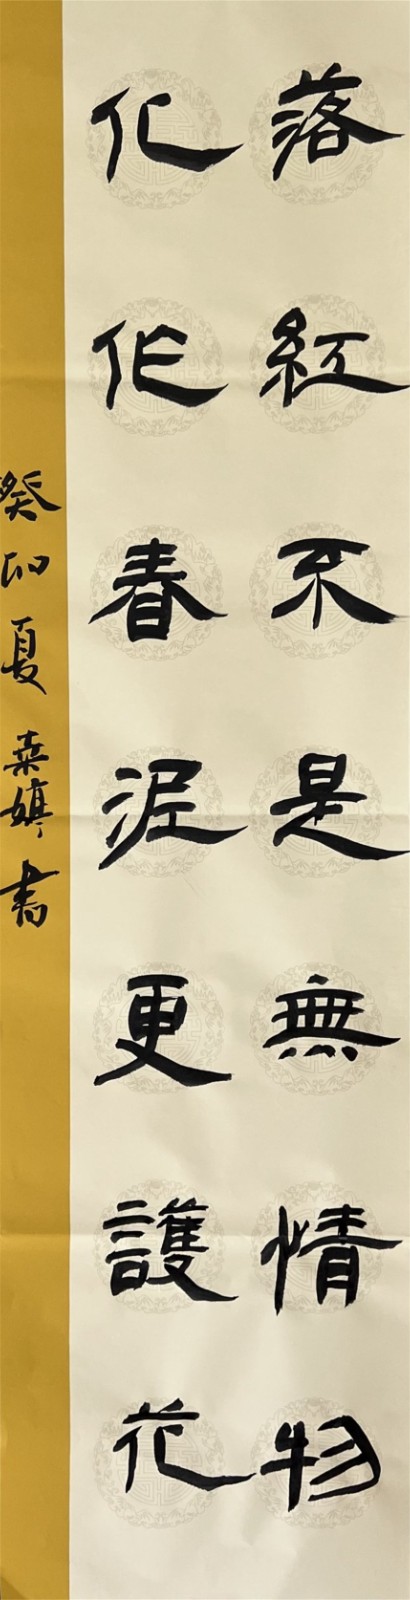 落紅不是無情物
化作春泥更護花
癸卯夏 書